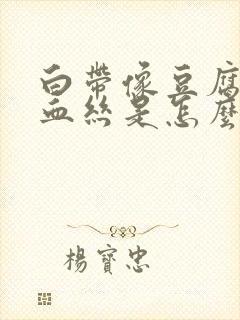 白帶像豆腐
血絲是怎麼
楊寶忠